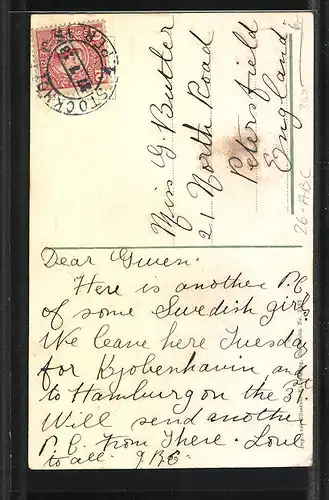 Miss G. Butler
21 North Road
Petersfield
England
26-ABC
Dear Gwen.
Here is another P.C.
of some Swedish girls.
We leave here Tuesday
for Kjobenhavin and
to Hamburg on the 31st
Will send another
P.C. from There. Love
to all.